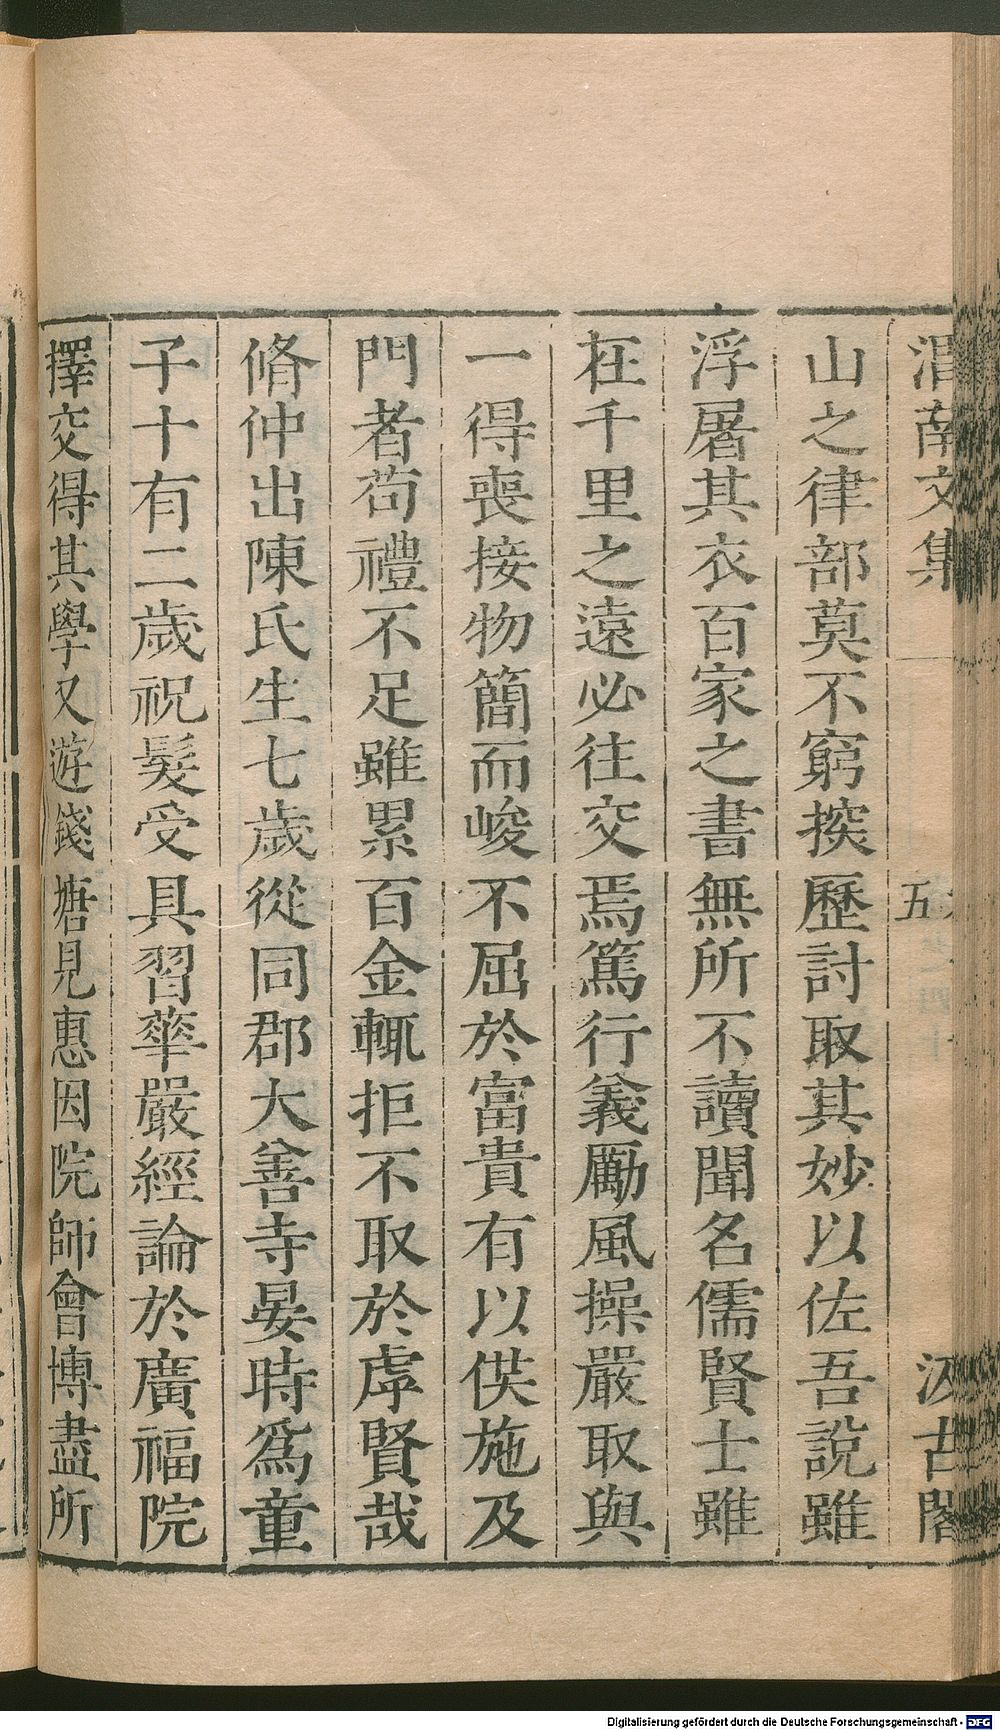 渭南文集
五
汲古閣
山之律部莫不窮探歷討取其妙以佐吾說雖
浮屠其衣百家之書無所不讀聞名儒賢士雖
在千里之遠必往交焉篤行義勵風操嚴取與
一得喪接物簡而峻不屈於富貴有以供施及
門者苟禮不足雖累百金輒拒不取於虖賢哉
脩仲出陳氏生七歲從同郡大善寺晏時爲童
子十有二歲祝髮受具習華嚴經論於廣福院
擇交得其學又遊錢塘見惠因院師會博盡所
Digitalisierung gefördert durch die Deutsche Forschungsgemeinschaft - DFG